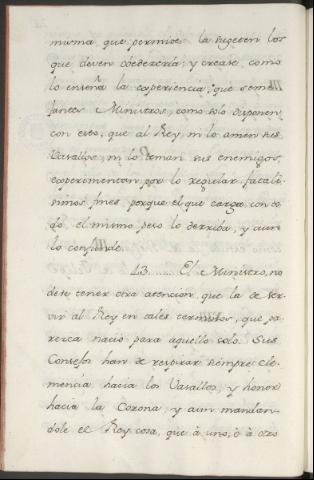 misma que permite la sugeten los
que deven obedecerla; y crease, como
lo enseña la esperiencia, que seme-
jantes Ministros, como solo disponen
con esto, que al Rey, ni lo amen sus
Vasallos, ni lo teman sus enemigos,
esperimentan por lo regular fatali-
simos fines, porque el que carga con to-
do el mismo peso lo derriba, y aun
lo confunde.
43. El Ministro, no
deve tener otra atencion, que la de ser-
vir al Rey en tales terminos, que pa-
rezca nació para aquello solo. Sus
Consejos han de respirar siempre cle-
mencia hacia los Vasallos, y honor
hacia la Corona, y aun mandan-
dole el Rey cosa, que à uno, ò à otro